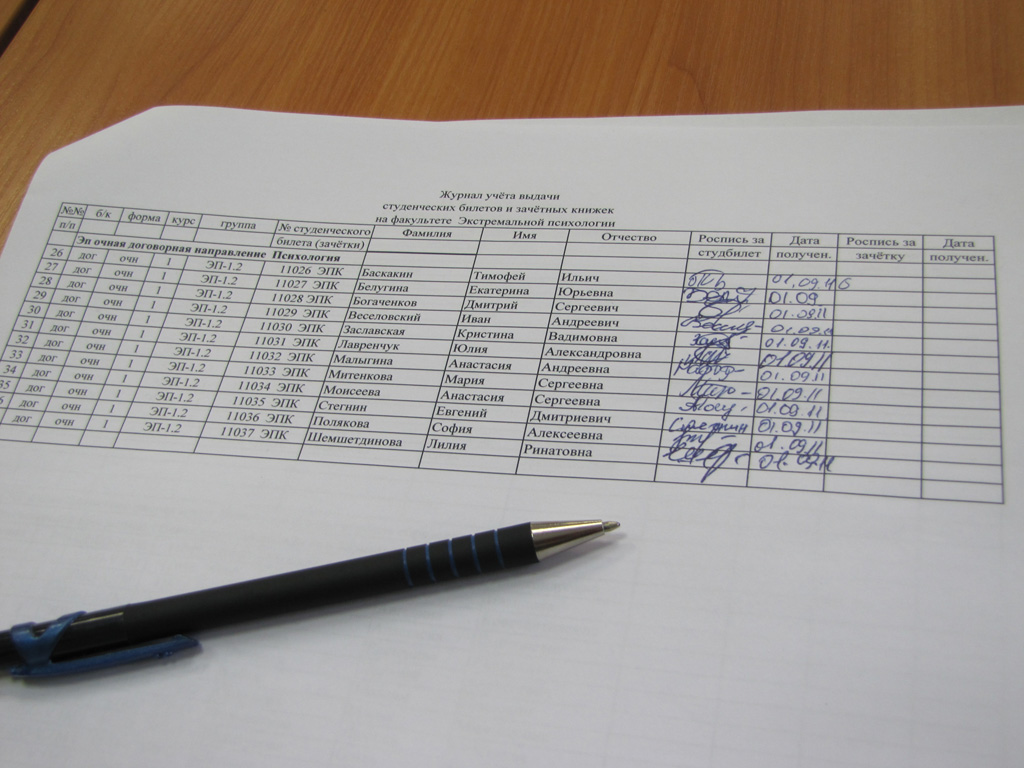 Журнал учёта выдачи
студенческих билетов и зачётных книжек
на факультете Экстремальной психологии
№№ п/п б/к форма курс группа № студенческого билета (зачётки) Фамилия Имя Отчество Роспись за студбилет Дата получен. Роспись за зачётку Дата получен.
Эп очная договорная направление Психология
26 дог очн 1 ЭП-1.2 11026 ЭПК Баскакин Тимофей Ильич 01.09.11
27 дог очн 1 ЭП-1.2 11027 ЭПК Белугина Екатерина Юрьевна 01.09
28 дог очн 1 ЭП-1.2 11028 ЭПК Богаченков Дмитрий Сергеевич 01.0911
29 дог очн 1 ЭП-1.2 11029 ЭПК Веселовский Иван Андреевич
30 дог очн 1 ЭП-1.2 11030 ЭПК Заславская Кристина Вадимовна 01.09.11.
31 дог очн 1 ЭП-1.2 11031 ЭПК Лавренчук Юлия Александровна 01.0911
32 дог очн 1 ЭП-1.2 11032 ЭПК Малыгина Анастасия Андреевна 01.09.11
33 дог очн 1 ЭП-1.2 11033 ЭПК Митенкова Мария Сергеевна 01.09.11
34 дог очн 1 ЭП-1.2 11034 ЭПК Моисеева Анастасия Сергеевна 01.09.11
35 дог очн 1 ЭП-1.2 11035 ЭПК Стегнин Евгений Дмитриевич Стегнин 01.09.11
дог очн 1 ЭП-1.2 11036 ЭПК Полякова София Алексеевна 01.09.11
11037 ЭПК Шемшетдинова Лилия Ринатовна 01.09.11